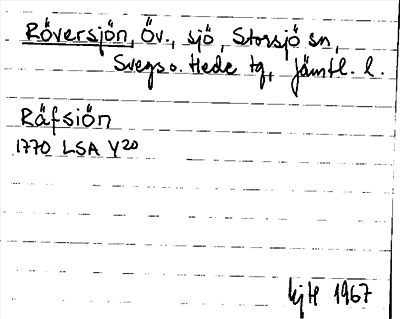 Röversjön, Öv., sjö, Storsjö sn,
Svegs o. Hede tg, Jämtl. l.
Räfsiön
1770 LSA Y20
1967